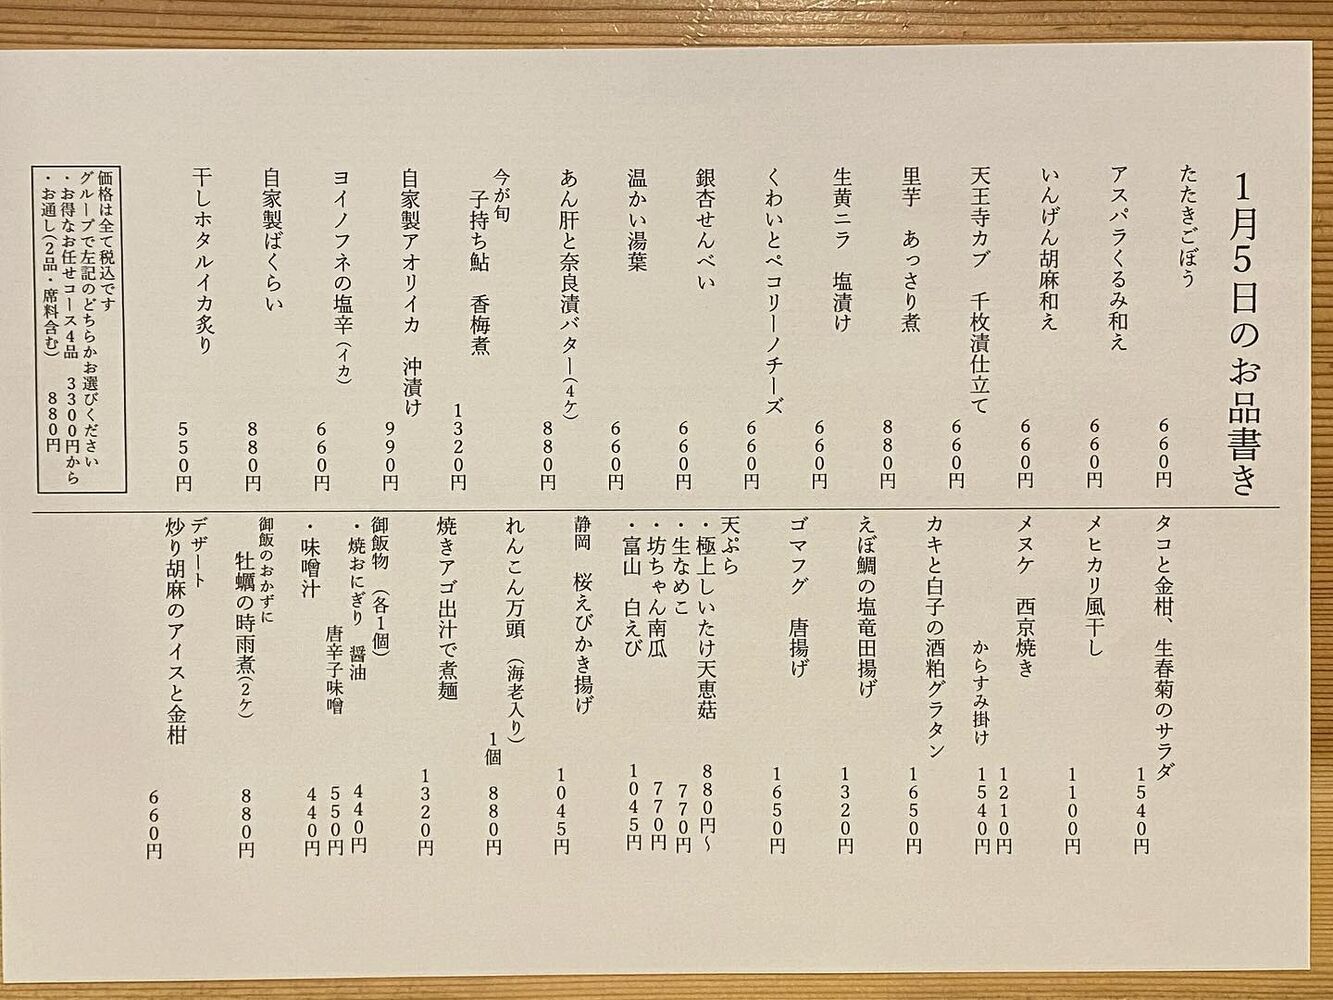 1月5日のお品書き
たたきごぼう
660円
アスパラくるみ和え
660円
いんげん胡麻和え
660円
天王寺カブ 千枚漬仕立て
660円
里芋 あっさり煮
880円
生黄ニラ 塩漬け
660円
くわいとペコリーノチーズ
660円
銀杏せんべい
660円
温かい湯葉
660円
あん肝と奈良漬バター(4ケ)
880円
今が旬
子持ち鮎 香梅煮
1320円
自家製アオリイカ 沖漬け
990円
ヨイノフネの塩辛(イカ)
660円
自家製ばくらい
880円
干しホタルイカ炙り
550円
価格は全て税込です
グループで左記のどちらかお選びください
・お得なお任せコース4品 3300円から
・お通し(2品・席料含む) 880円
タコと金柑、生春菊のサラダ
1540円
メヒカリ風干し
1100円
メヌケ 西京焼き
1210円
からすみ掛け 1540円
カキと白子の酒粕グラタン
1650円
えぼ鯛の塩竜田揚げ
1320円
ゴマフグ 唐揚げ
1650円
天ぷら
・極上しいたけ天恵菇 880円〜
・生なめこ 770円
・坊ちゃん南瓜 770円
・富山 白えび 1045円
静岡 桜えびかき揚げ
1045円
れんこん万頭 (海老入り)
1個 880円
焼きアゴ出汁で煮麺
1320円
御飯物 (各1個)
・焼おにぎり 醤油 440円
唐辛子味噌 550円
・味噌汁 440円
御飯のおかずに
牡蠣の時雨煮(2ケ)
880円
デザート
炒り胡麻のアイスと金柑
660円